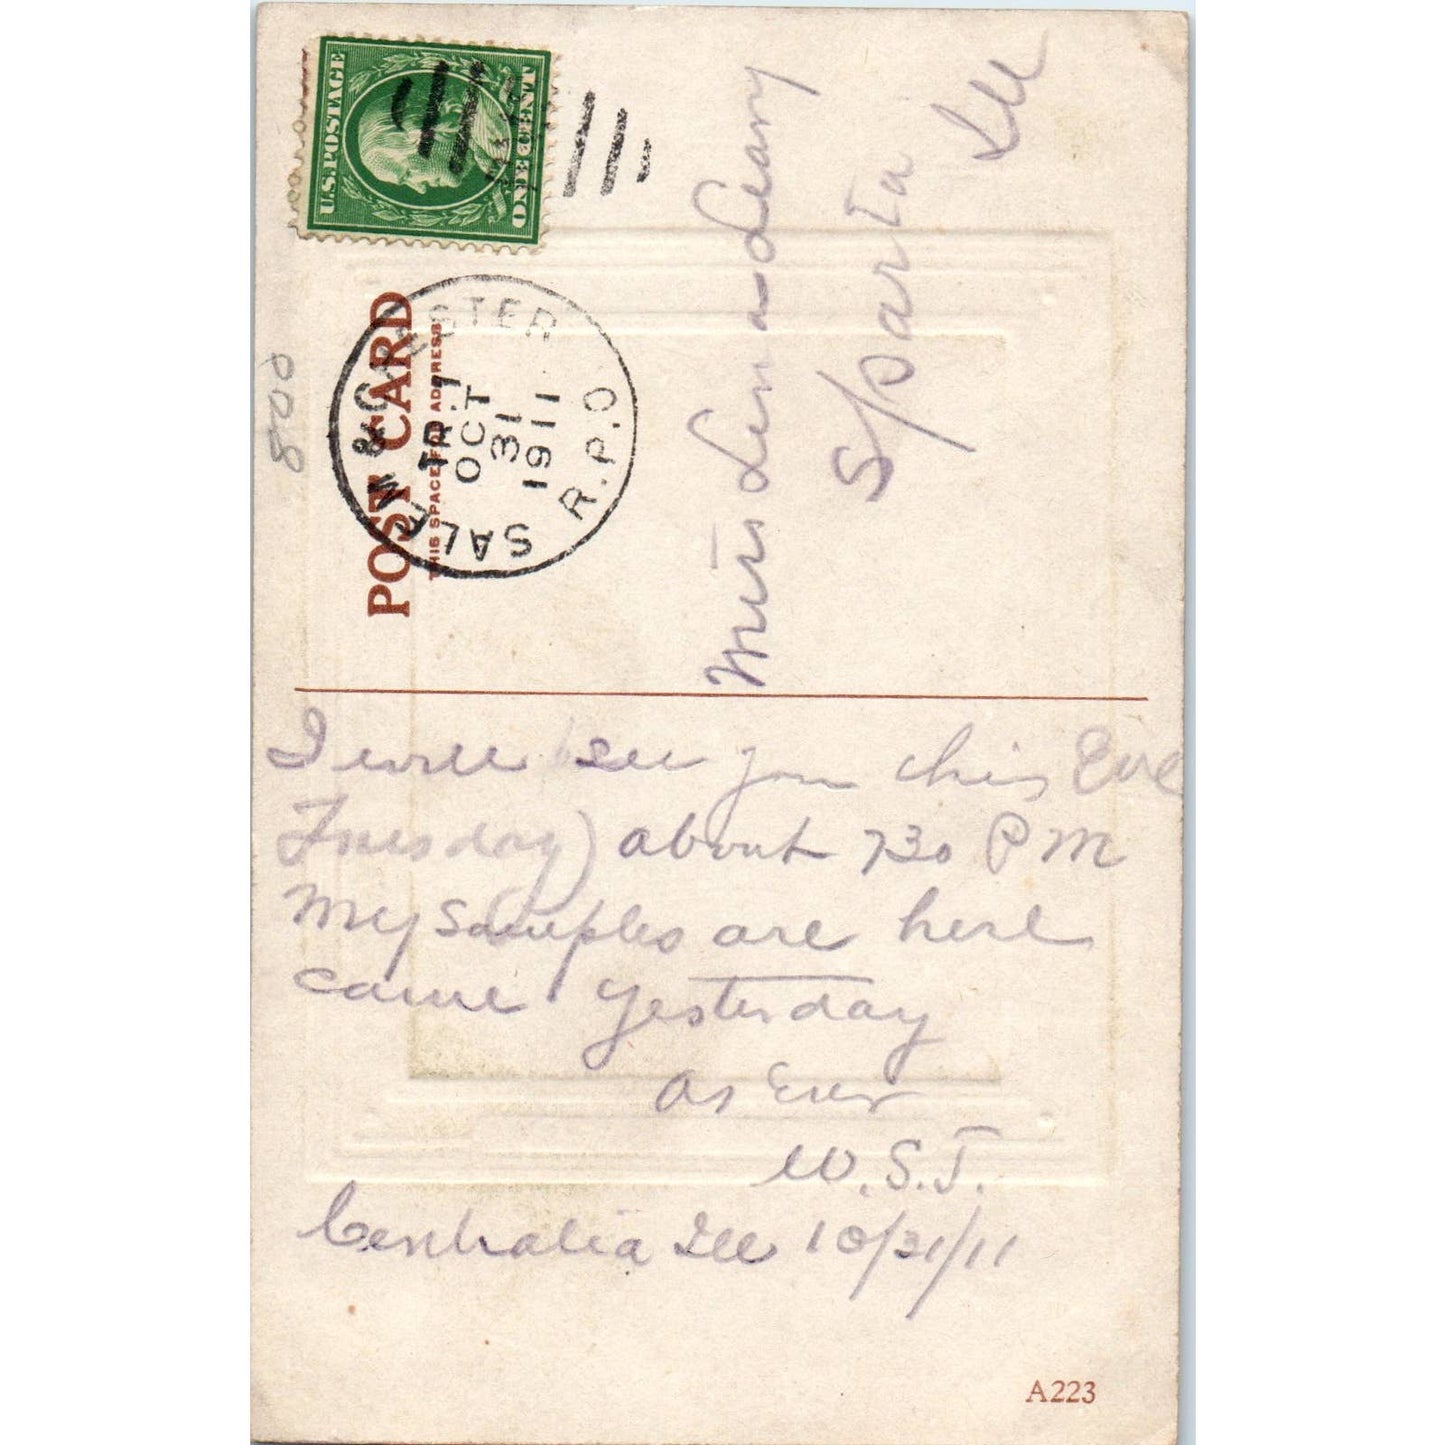 U.S. POSTAGE
ONE CENT
POST CARD
THIS SPACE FOR ADDRESS
SALEM & CHESTER
R.P.O.
TR. 7
OCT
31
1911
800
Miss Lena Leary
Sparta
Ill
I will see you this Eve
Tuesday) about 730 P M
My samples are here
came yesterday
As Ever
W.S.J.
Centralia Ill 10/31/11
A223